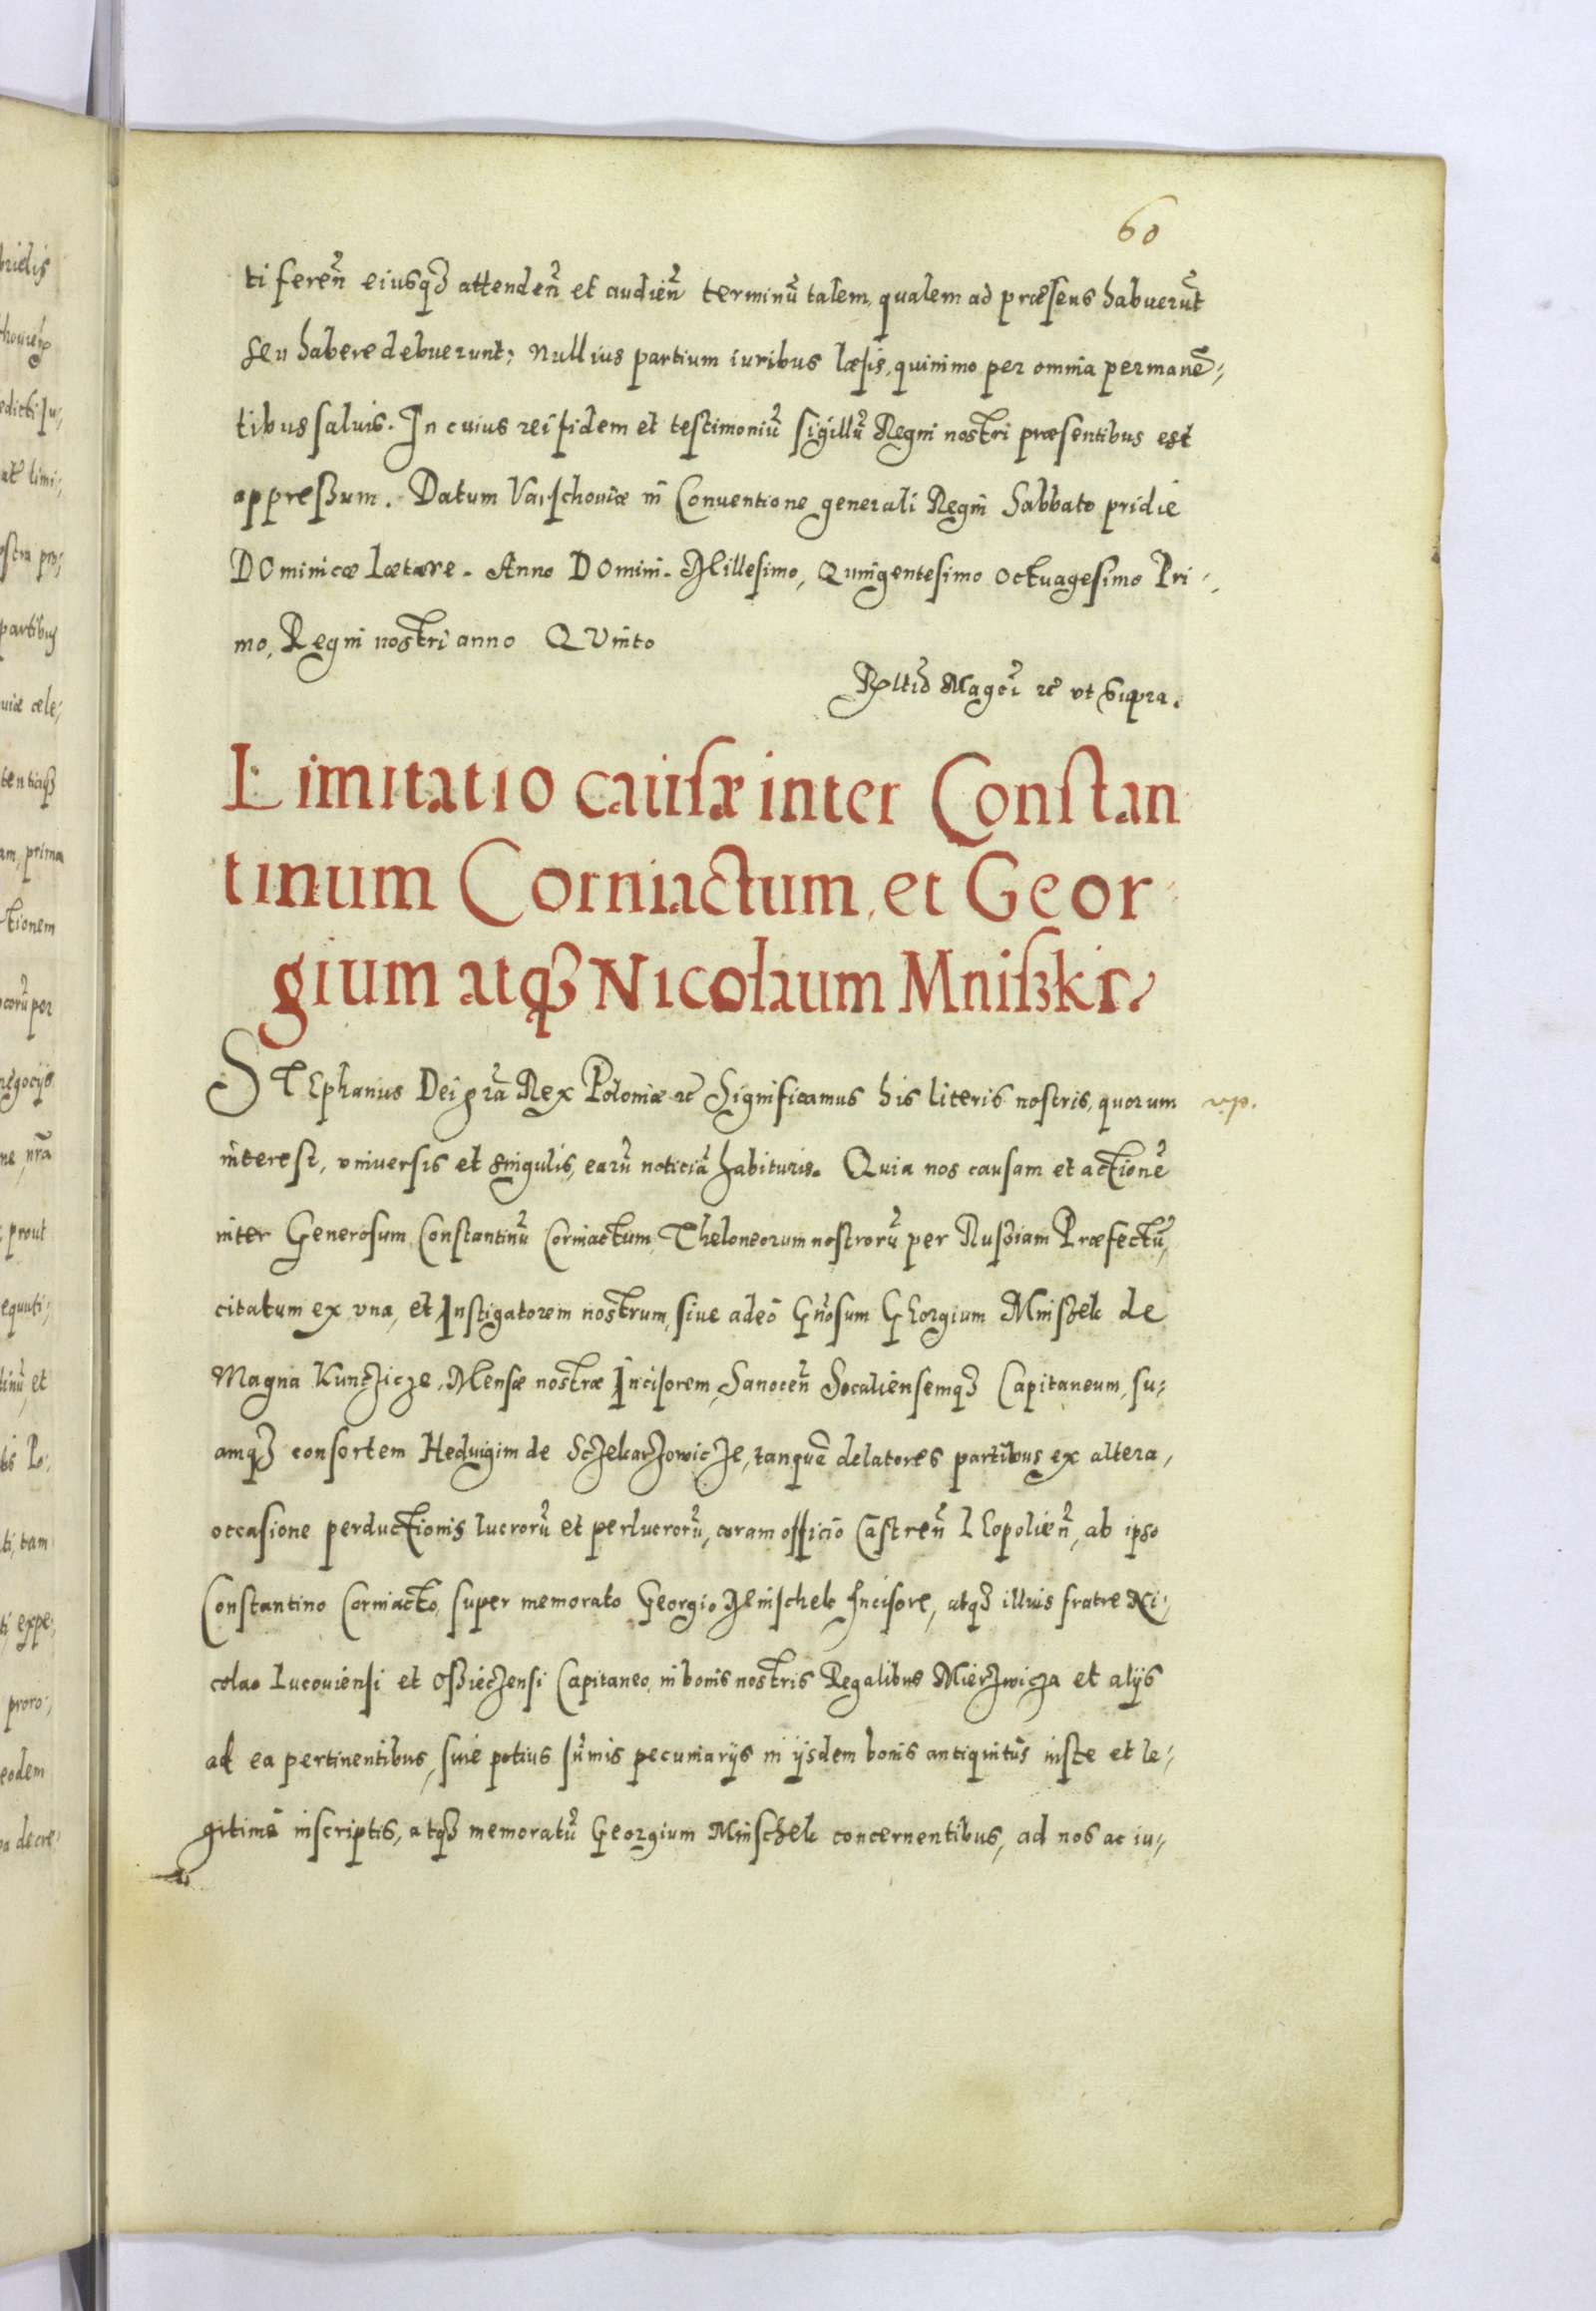 60
ti fereñ eiusqȝ attendeñ et audieñ terminũ talem, qualem ad præsens habuerũt
seu habere debuerunt; nullius partium iuribus læsis, quinimo per omnia permanẽ-
tibus saluis. In cuius rei fidem et testimoniũ sigillũ Regni nostri præsentibus est
appreßum. Datum Varschouiæ in Conuentione generali Regni Sabbato pridie
DOminicæ Lætare. Anno DOmini. Millesimo, Quingentesimo Octuagesimo Pri-
mo, Regni nostri anno QVinto
ut supra.
Limitatio causæ inter Constan
tinum Corniactum, et Geor
gium atqȝ Nicolaum Mnißki.
STEphanus Dei grã Rex Poloniæ ꝛc Significamus his literis nostris, quorum
interest, vniuersis et singulis, earũ noticiã habituris. Quia nos causam et actionẽ
inter Generosum Constantinũ Corniactum, Theloneorum nostrorũ per Rußiam Præfectũ,
citatum ex vna, et Instigatorem nostrum, siue adeò Gñosum GEorgium Mnisẓek de
Magna Kunczicze, Mensæ nostræ Incisorem, Sanoceñ Socaliensemqȝ Capitaneum, su-
amqȝ consortem Heduigim de Sczekarzowicze, tanquã delatores partibus ex altera,
occasione perductionis lucrorũ et perlucrorũ, coram officio Castreñ LEopolieñ, ab ipso
Constantino Corniacto, super memorato Georgio Mnischek Incisore, atqȝ illius fratre Ni-
colao Lucouiensi et Oßieczensi Capitaneo, in bonis nostris Regalibus Mierzwicza et alijs
ad ea pertinentibus, siue potius sũmis pecuniarijs in ijsdem bonis antiquitùs iuste et le-
gitimè inscriptis, atqȝ memoratũ Georgium Mnischek concernentibus, ad nos ac iu-